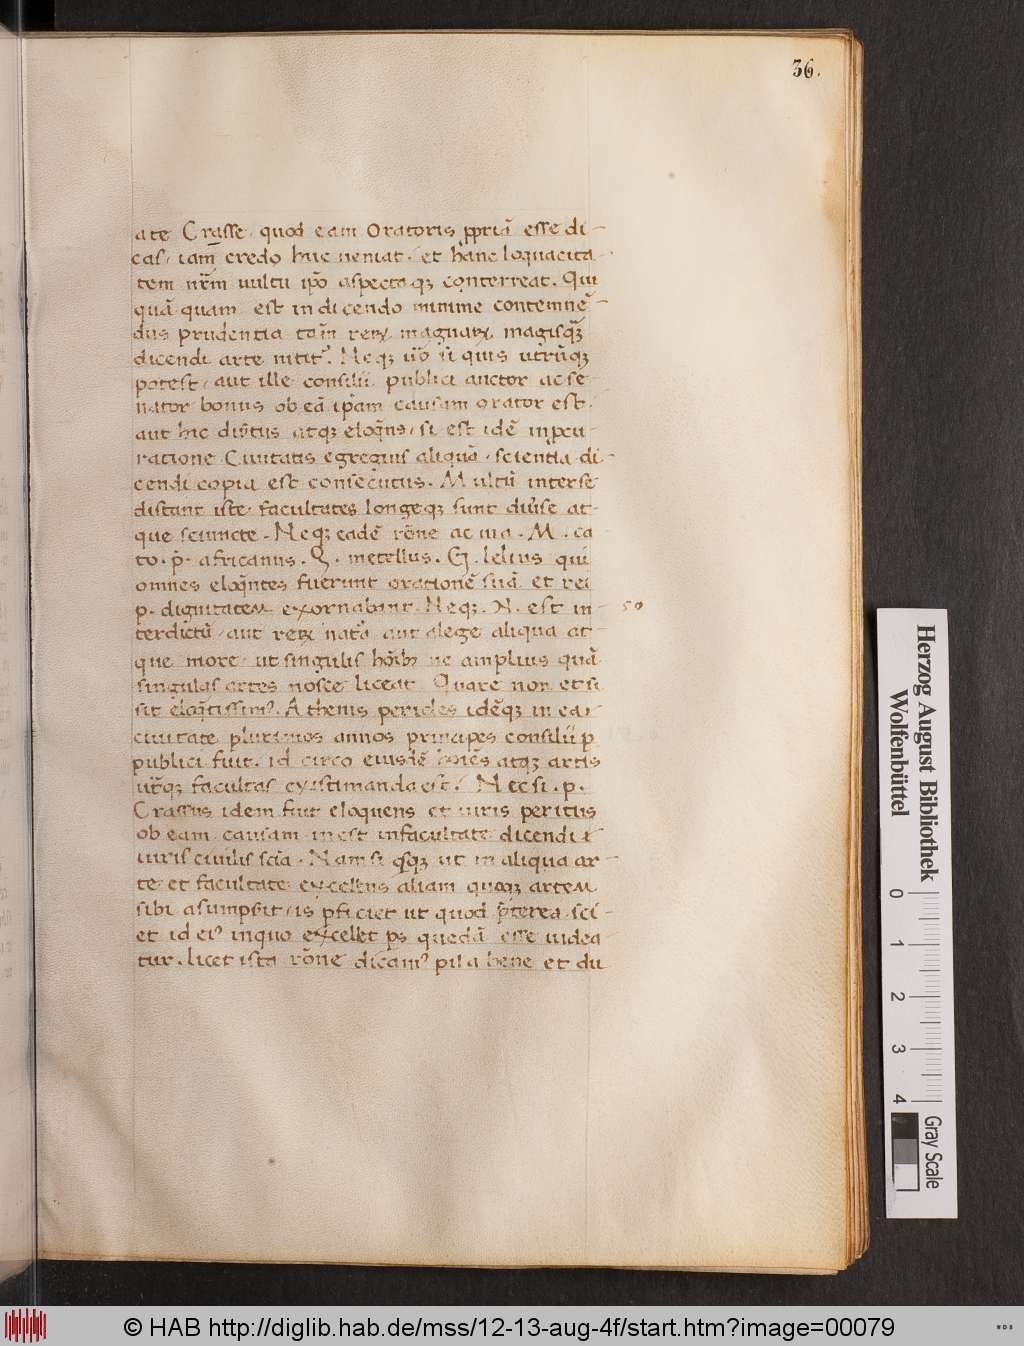 36.
ate Crasse quod eam Oratoris ꝓpriā esse di-
cas, iam credo huc ueniat. et hanc loquacita-
tem nr̄m uultu ip̄o aspectuqꝫ conterreat. Qui
quā quam est in dicendo minime contemnē-
dus prudentia tam̄ reꝝ magnaꝝ magisqꝫ
dicendi arte nitit᷑. Neqꝫ u̅o ū quis utrūqꝫ
potest, aut ille consilii publici auctor ac se-
nator bonus ob eā ip̄am causam orator est.
aut hic dis̄tus atqꝫ eloq̄ns, si est idē in ꝓcu-
ratione Ciuitatis egregius aliquā scientia di-
cendi copia est consecutus. Multū inter se
distant iste facultates longeqꝫ sunt diu̾se at-
que seiuncte. Neqꝫ eadē rōne ac uia. M. ca-
to. p̄. africanus. Q. metellus. G. lelius qui
omnes eloq̄ntes fuerunt orationē suā et rei
p. dignitatem exornabant. Neqꝫ. N. est in-
50
terdictū, aut reꝝ nat᷑a aut a lege aliqua at-
que more ut singulis hōibꝫ ne amplius quā
singulas artes nosce liceat. Quare non et si
sit eloq̄ntissimꝰ. Athenis pericles idēqꝫ in ea
ciuitate plurimos annos princeps consilii p
publici fuit. id circo eiusdē hoīēs atqꝫ artis
ut̄qꝫ facultas existimanda est. Nec si. p.
Crassus idem fuit eloquens et iuris peritus
ob eam causam inest in facultate dicendi
iuris ciuilis scīa. Nam si qsqꝫ ut in aliqua ar-
te et facultate excellens aliam quoqꝫ artem
sibi asumps̄it, is ꝑficiet ut quod p̄terea sci-
et id eiꝰ in quo excellet ps quedā esse uidea
tur. licet ista rōne dicamꝰ pila bene et du
Herzog August Bibliothek
Wolfenbüttel
0 1 2 3 4
Gray Scale
© HAB http://diglib.hab.de/mss/12-13-aug-4f/start.htm?image=00079